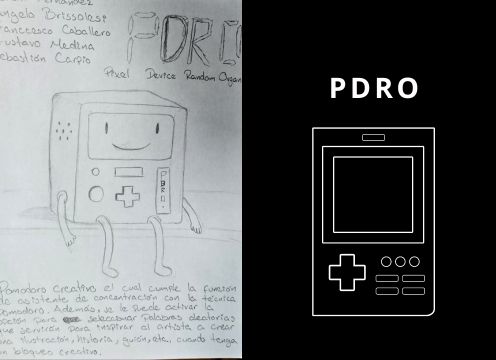 Fernández
Angelo Brissolesi
Francesco Caballero
Gustavo Medina
Sebastián Carpio
PDRO
Pixel Device Random Organ
PDRO
Pomodoro Creativo el cual cumple la función
de asistente de concentración con la técnica
pomodoro. Además, se le puede activar la
opción para seleccionar palabras aleatorias
que servirán para inspirar al artista a crear
una ilustración, historia, guión, etc, cuando tenga
un bloqueo creativo.
PDRO